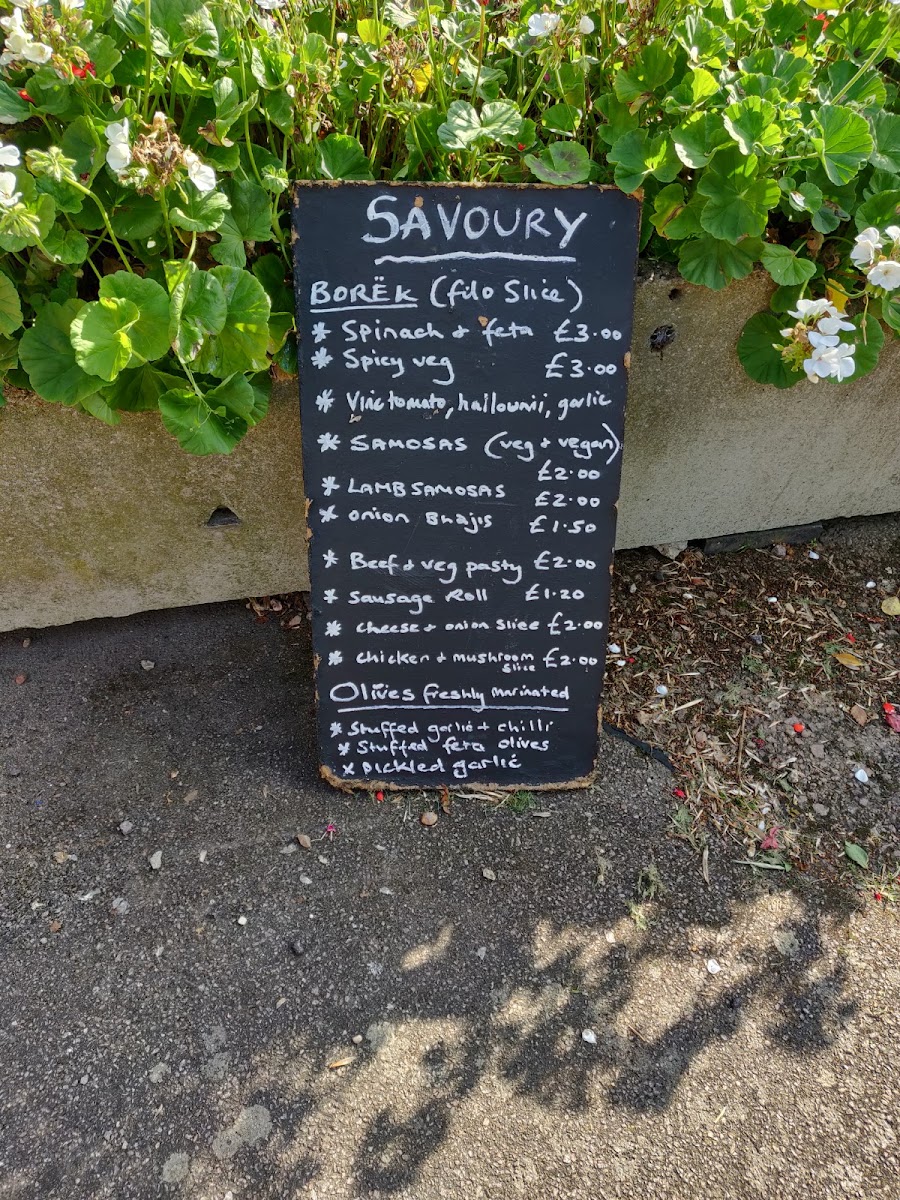 SAVOURY
BORËK (filo Slice)
* Spinach + feta £3.00
* Spicy veg £3.00
* Vine tomato, halloumi, garlic
* SAMOSAS (veg + vegan)
£2.00
* LAMB SAMOSAS £2.00
* onion Bhajis £1.50
* Beef + veg pasty £2.00
* Sausage Roll £1.20
* Cheese + onion slice £2.00
* Chicken + mushroom slice £2.00
Olives freshly marinated
* Stuffed garlic + chilli
* Stuffed feta olives
* Pickled garlic